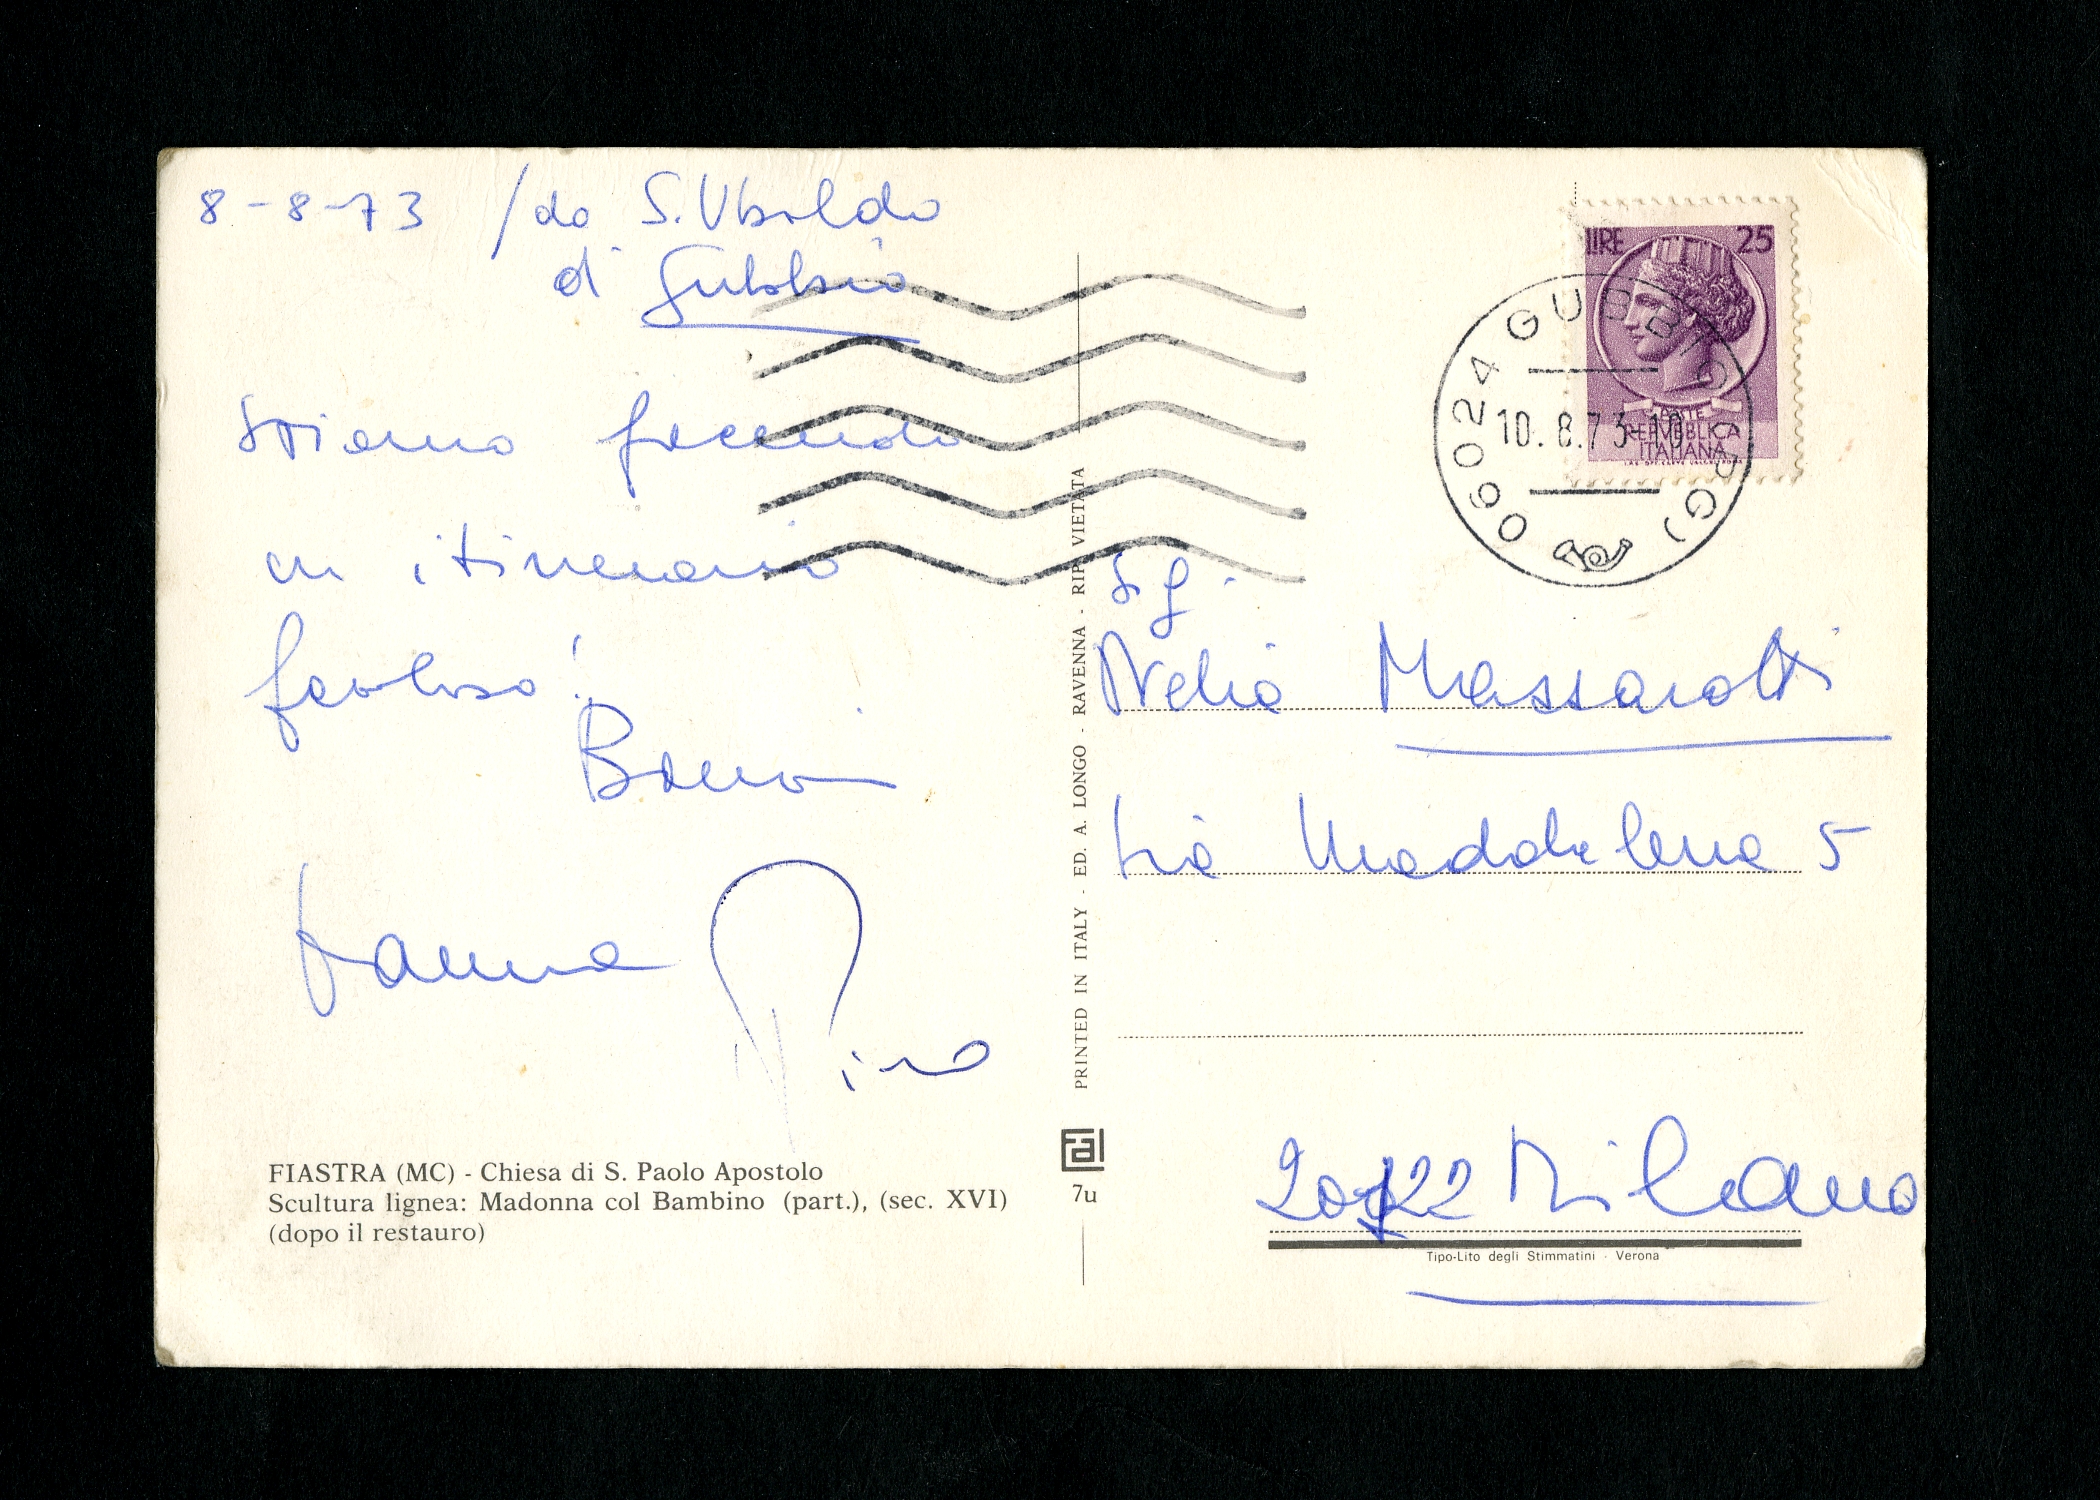 8-8-73 / da S. Ubaldo
di Gubbio
Stiamo facendo
un itinerario
favoloso!
Bacioni
Vanna
Pino
FIASTRA (MC) - Chiesa di S. Paolo Apostolo
Scultura lignea: Madonna col Bambino (part.), (sec. XVI)
(dopo il restauro)
PRINTED IN ITALY - ED. A. LONGO - RAVENNA - RIP. VIETATA
7u
LIRE 25
REPVBBLICA
ITALIANA
06024 GUBBIO (PG)
10.8.73-10
Sig.
Nelia Massarotti
Via Maddalena 5
20122 Milano
Tipo-Lito degli Stimmatini - Verona